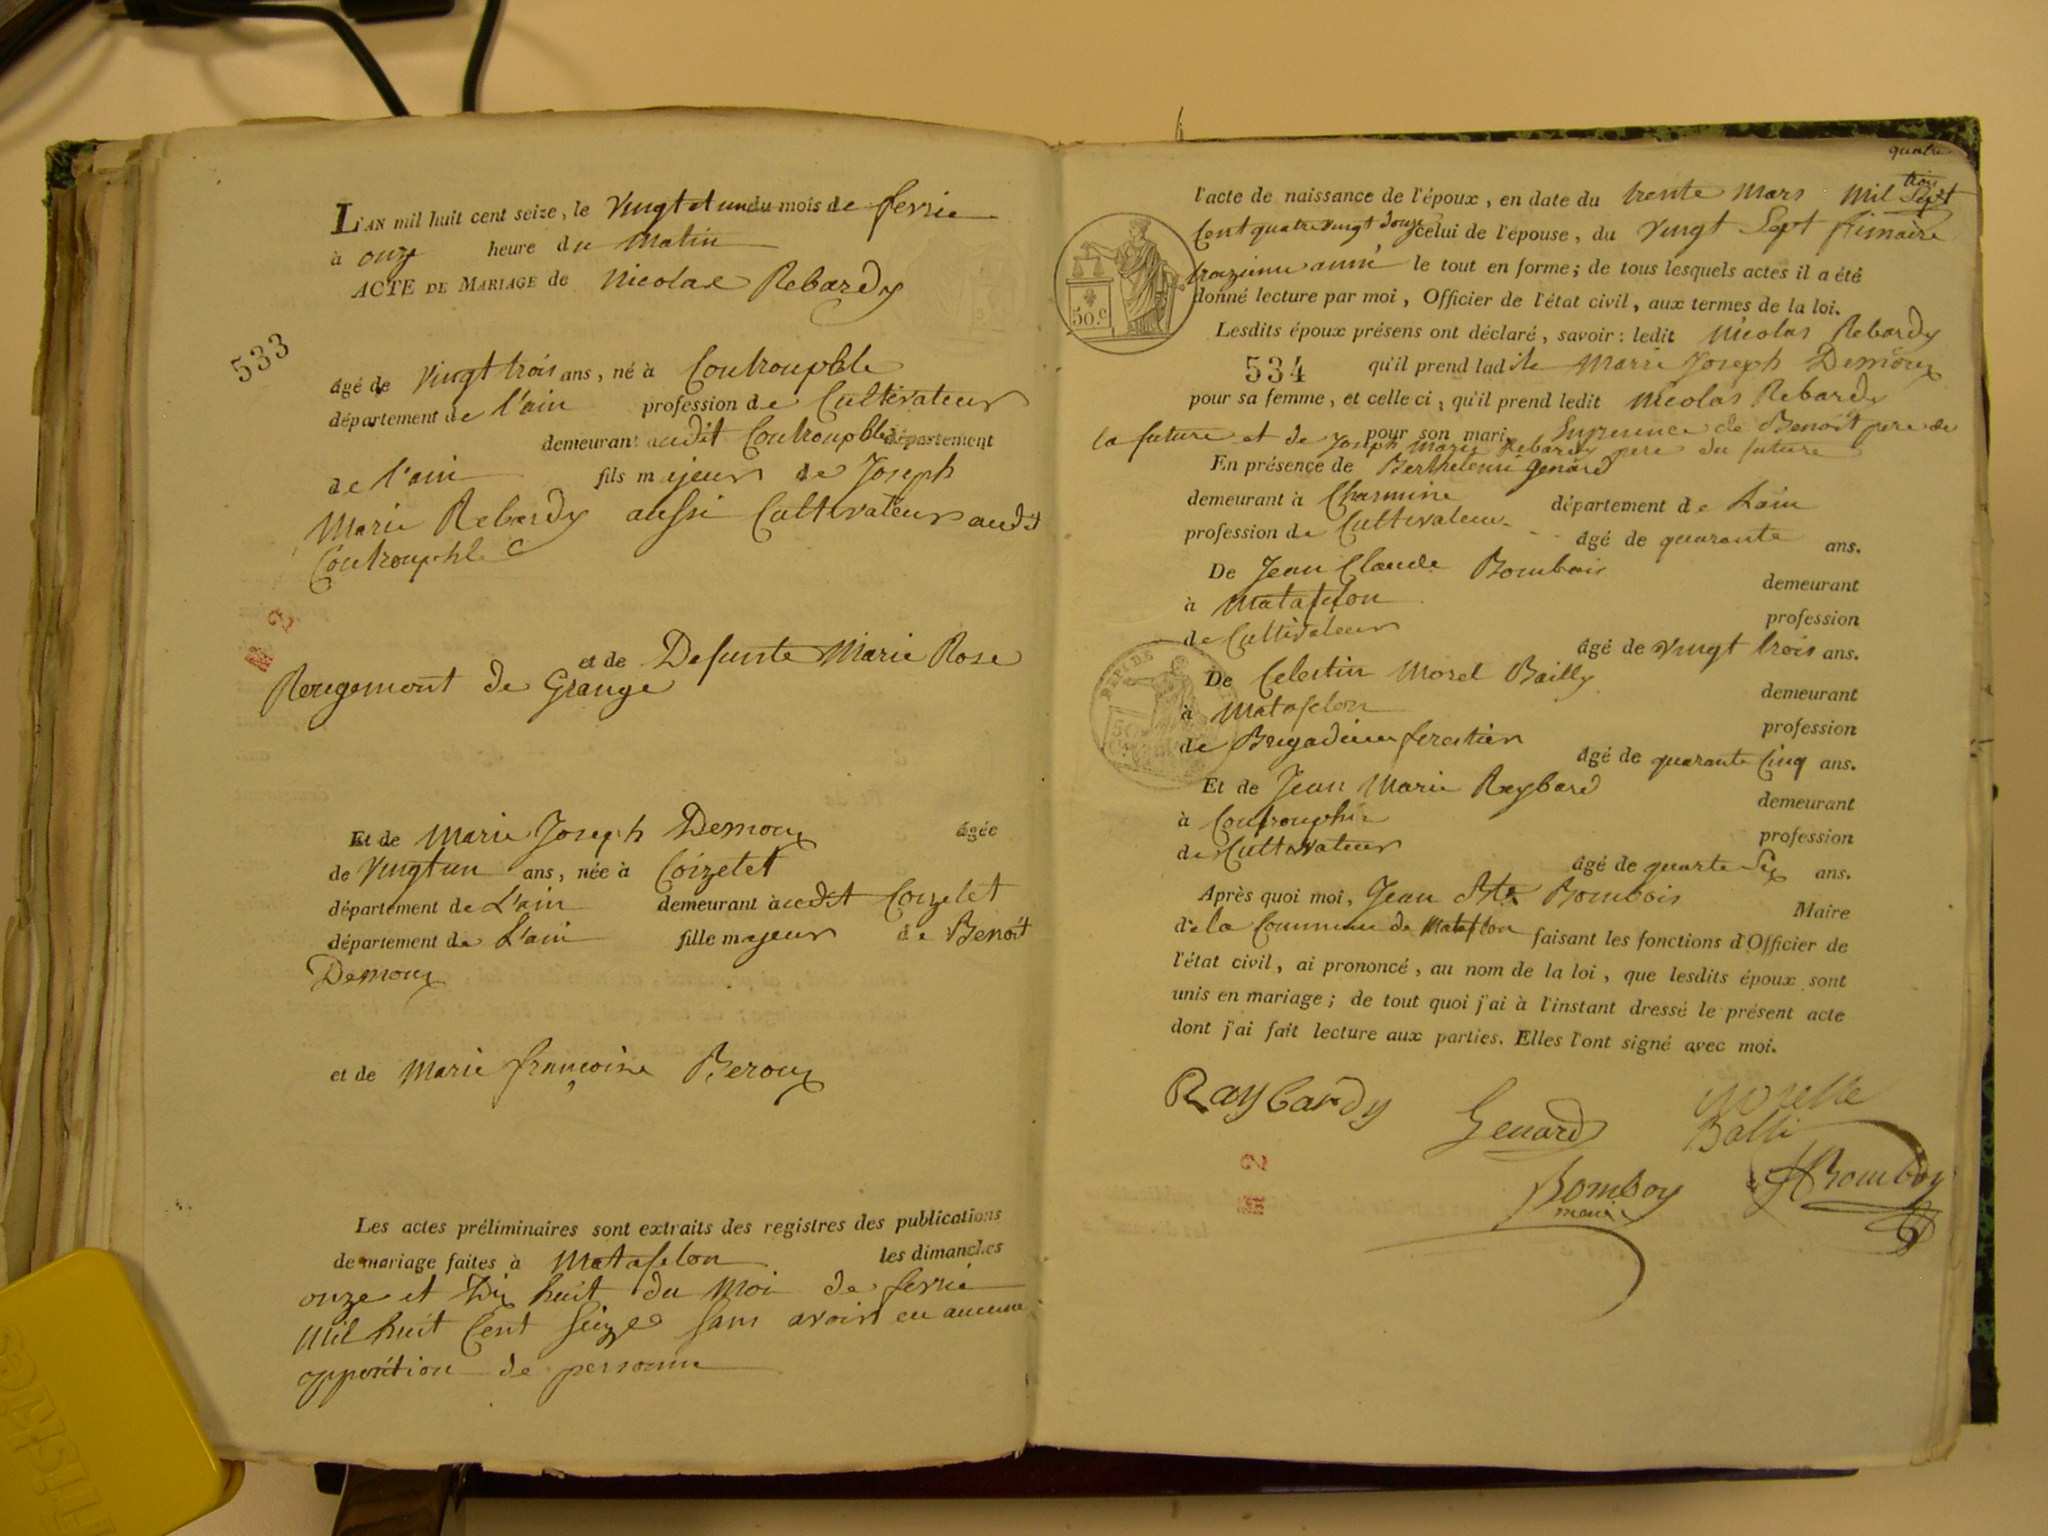 L'AN mil huit cent seize, le vingt et un du mois de fevrie
à onze heure du matin
ACTE DE MARIAGE de Nicolas Rebardy
533
âgé de vingt trois ans, né à Coutrouphle
département de l'ain profession de Cultivateur
demeurant audit Coutrouphle département
de l'ain fils majeur de Joseph
Marie Rebardy aussi Cultivateur audit
Coutrouphle
et de Defunte Marie Rose
Rougemont de Grange
Et de Marie Joseph Demoux âgée
de vingt un ans, née à Coizelet
département de L'ain demeurant audit Coizelet
département de L'ain fille majeur de Benoit
Demoux
et de Marie françoise Beroux
Les actes préliminaires sont extraits des registres des publications
de mariage faites à Matafelon les dimanches
onze et Dix huit du Moi de fevrie
Mil huit Cent Seize sans avoir eu aucune
opposition de personne
quatre
trois
l'acte de naissance de l'époux, en date du trente Mars Mil Sept
Cent quatre vingt douze celui de l'épouse, du vingt Sept frimaire
troizieme anné le tout en forme; de tous lesquels actes il a été
donné lecture par moi, Officier de l'état civil, aux termes de la loi.
50.c
Lesdits époux présens ont déclaré, savoir: ledit Nicolas Rebardy
534 qu'il prend ladite Marie Joseph Demoux
pour sa femme, et celle ci, qu'il prend ledit Nicolas Rebardy
pour son mari. En presence de Benoit pere de
la future et de Joseph Marie Rebardy pere du future
En présence de Berthelemi Genard
demeurant à Charmine département de Lain
profession de Cultivateur âgé de quarante ans.
De Jean Claude Bombois demeurant
à Matafelon profession
de Cultivateur âgé de vingt trois ans.
De Celestin Morel Bailly demeurant
à Matafelon profession
de Brigadier forestier âgé de quarante Cinq ans.
Et de Jean Marie Reybard demeurant
à Coutrouphle profession
de Cultivateur âgé de quarte Six ans.
Après quoi moi, Jean Bte Bombois Maire
de la Commune de Matafelon faisant les fonctions d'Officier de
l'état civil, ai prononcé, au nom de la loi, que lesdits époux sont
unis en mariage; de tout quoi j'ai à l'instant dressé le présent acte
dont j'ai fait lecture aux parties. Elles l'ont signé avec moi.
Raybardy Genard Morelle
Balli
Bomboy Bomboy
maire